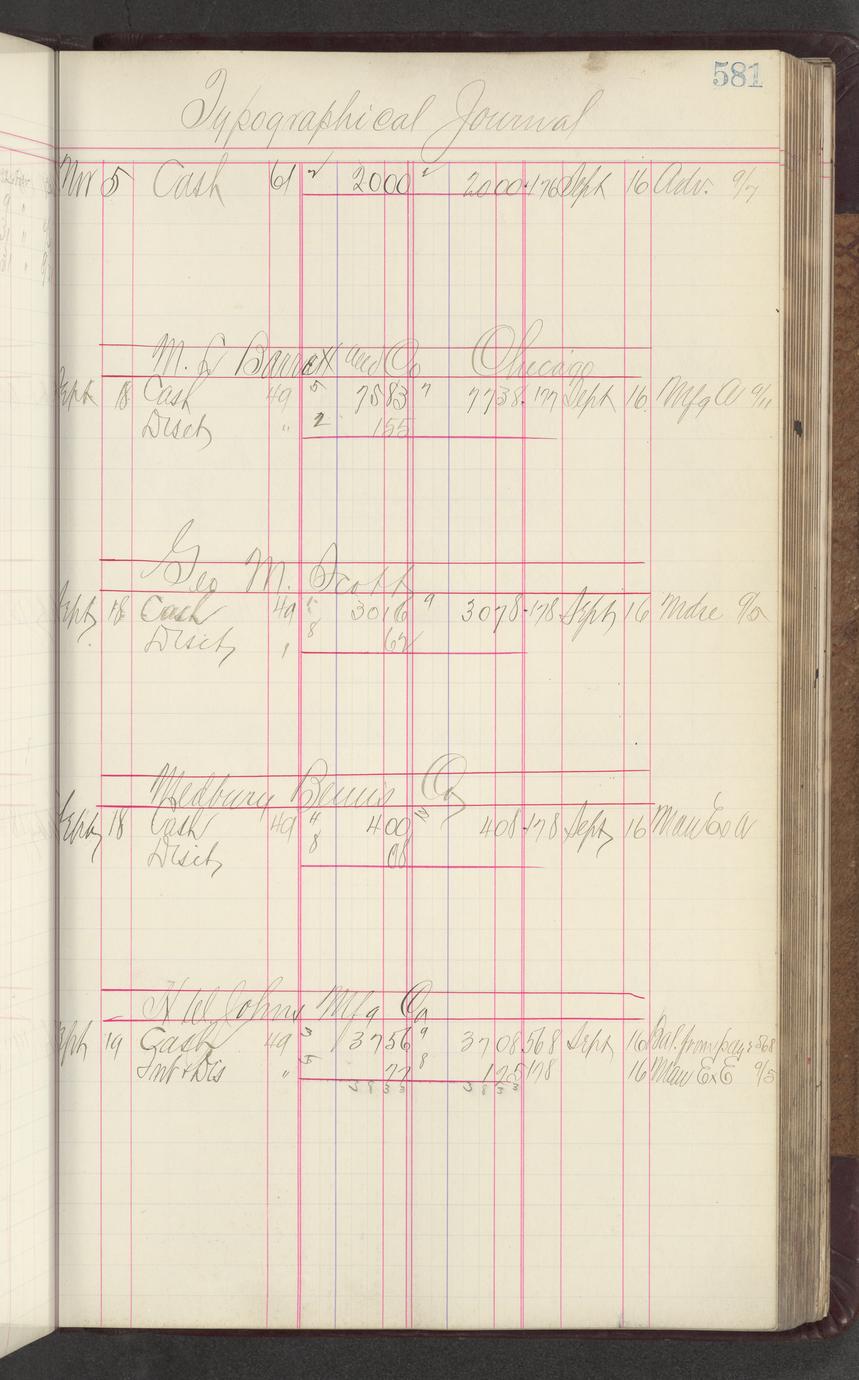 581
Typographical Journal
Nov 5 Cash 61 2000 2000 176 Sept 16 Adv. 9/7
M. L Barrett and Co Chicago
Sept 18 Cash 49 5 7583 7 7738 177 Sept 16 Mfg A 9/11
Disct " 2 155
Geo M. Scott
Sept 18 Cash 49 3016 9 3078 178 Sept 16 Mdse 9/5
Disct 8 62
Medbury Bemis Co
Sept 18 Cash 49 400 408 178 Sept 16 Man Ex A
Disct 8 08
H W Johns Mfg Co
Sept 19 Cash 49 3 3756 9 3708 568 Sept 16 Bal. from page 568
Int & Dis " 5 77 8 125 178 16 Man Ex E 9/5
3833 3833